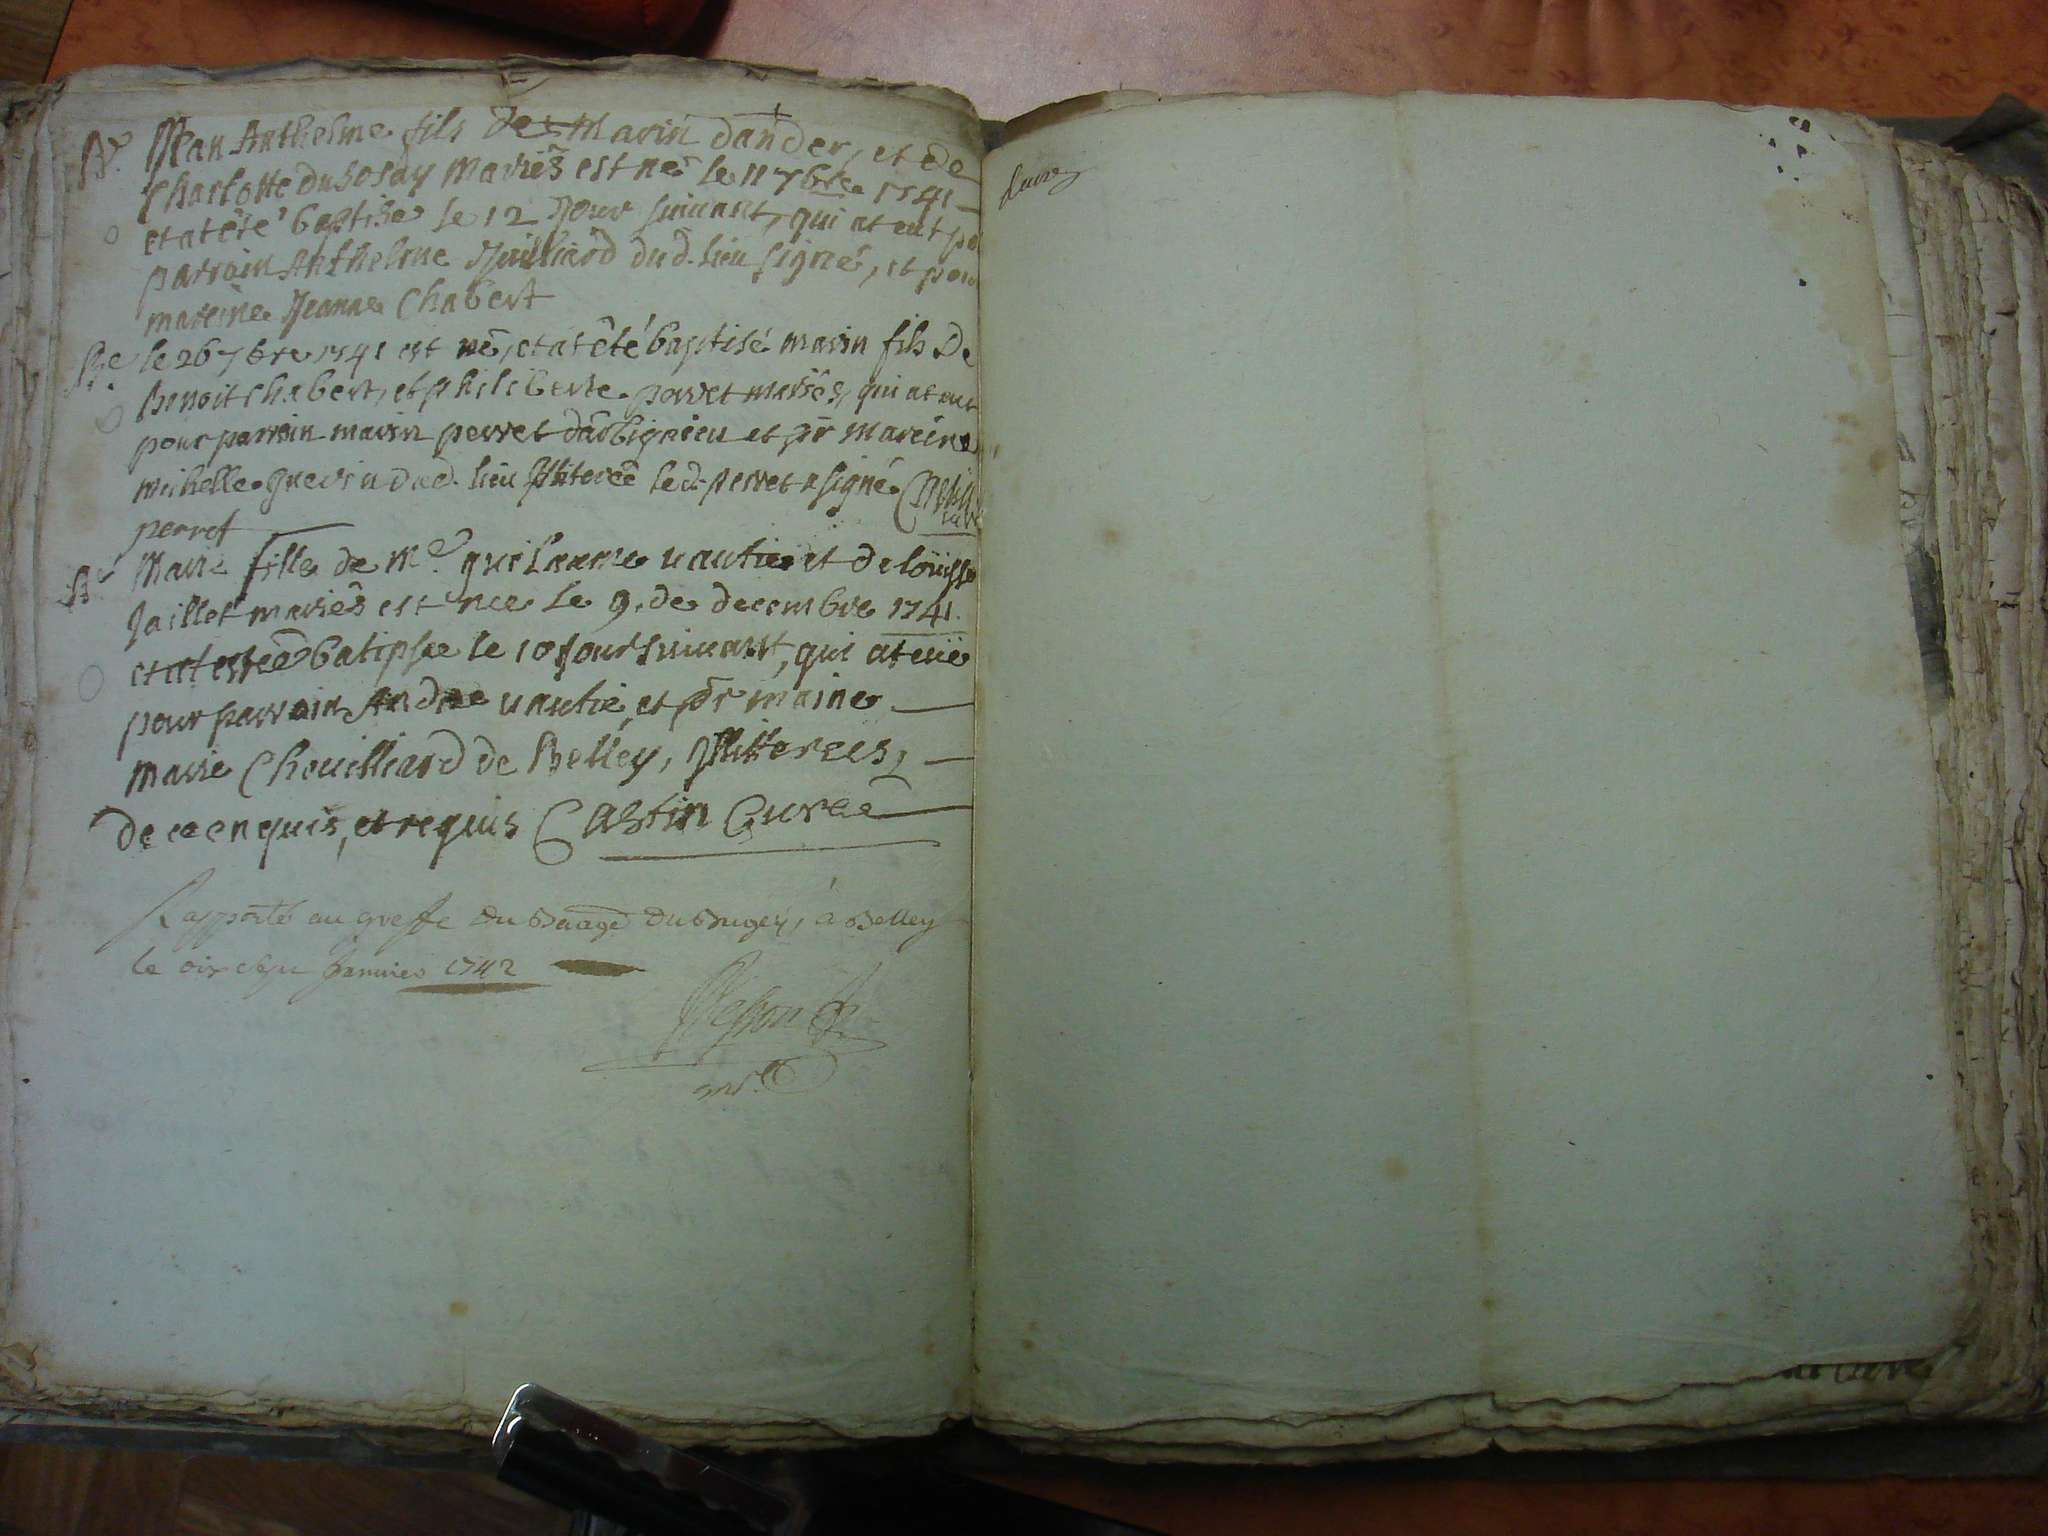 Bᵉ. Jean Anthelme fils de Marin dander, et de
Charlotte dubosay Mariés est né le 11 7bre 1741
et at été baptise le 12 Jour suivant, qui at eut po
parrain Anthelme Juilliard dud. lieu signé, et pour
mareine Jeanne Chabert
Bᵉ. le 26 7bre 1741 est né, et at été baptisé marin fils De
Benoit Chabert, et philiberte perret mariés, qui at eut
pour parrain marin perret d'arbignieu et pr mareine
michelle dud. lieu Illiterée led. perret a signé
perret
Bᵉ Marie fille de Mᵉ. guilaume uautier et de loüisse
Jaillet mariés est nee le 9. de decembre 1741.
et at estée batipsee le 10 jour suivant, qui at eüe
pour parrain Andree uautie, et pr maine
Marie Chouilliard de Belley, Illitterees,
de ce enquis, et requis Castin Curée
Rapporté au greffe du Baage du Bugey, à Belley
le dix sept Janvier 1742
Besson